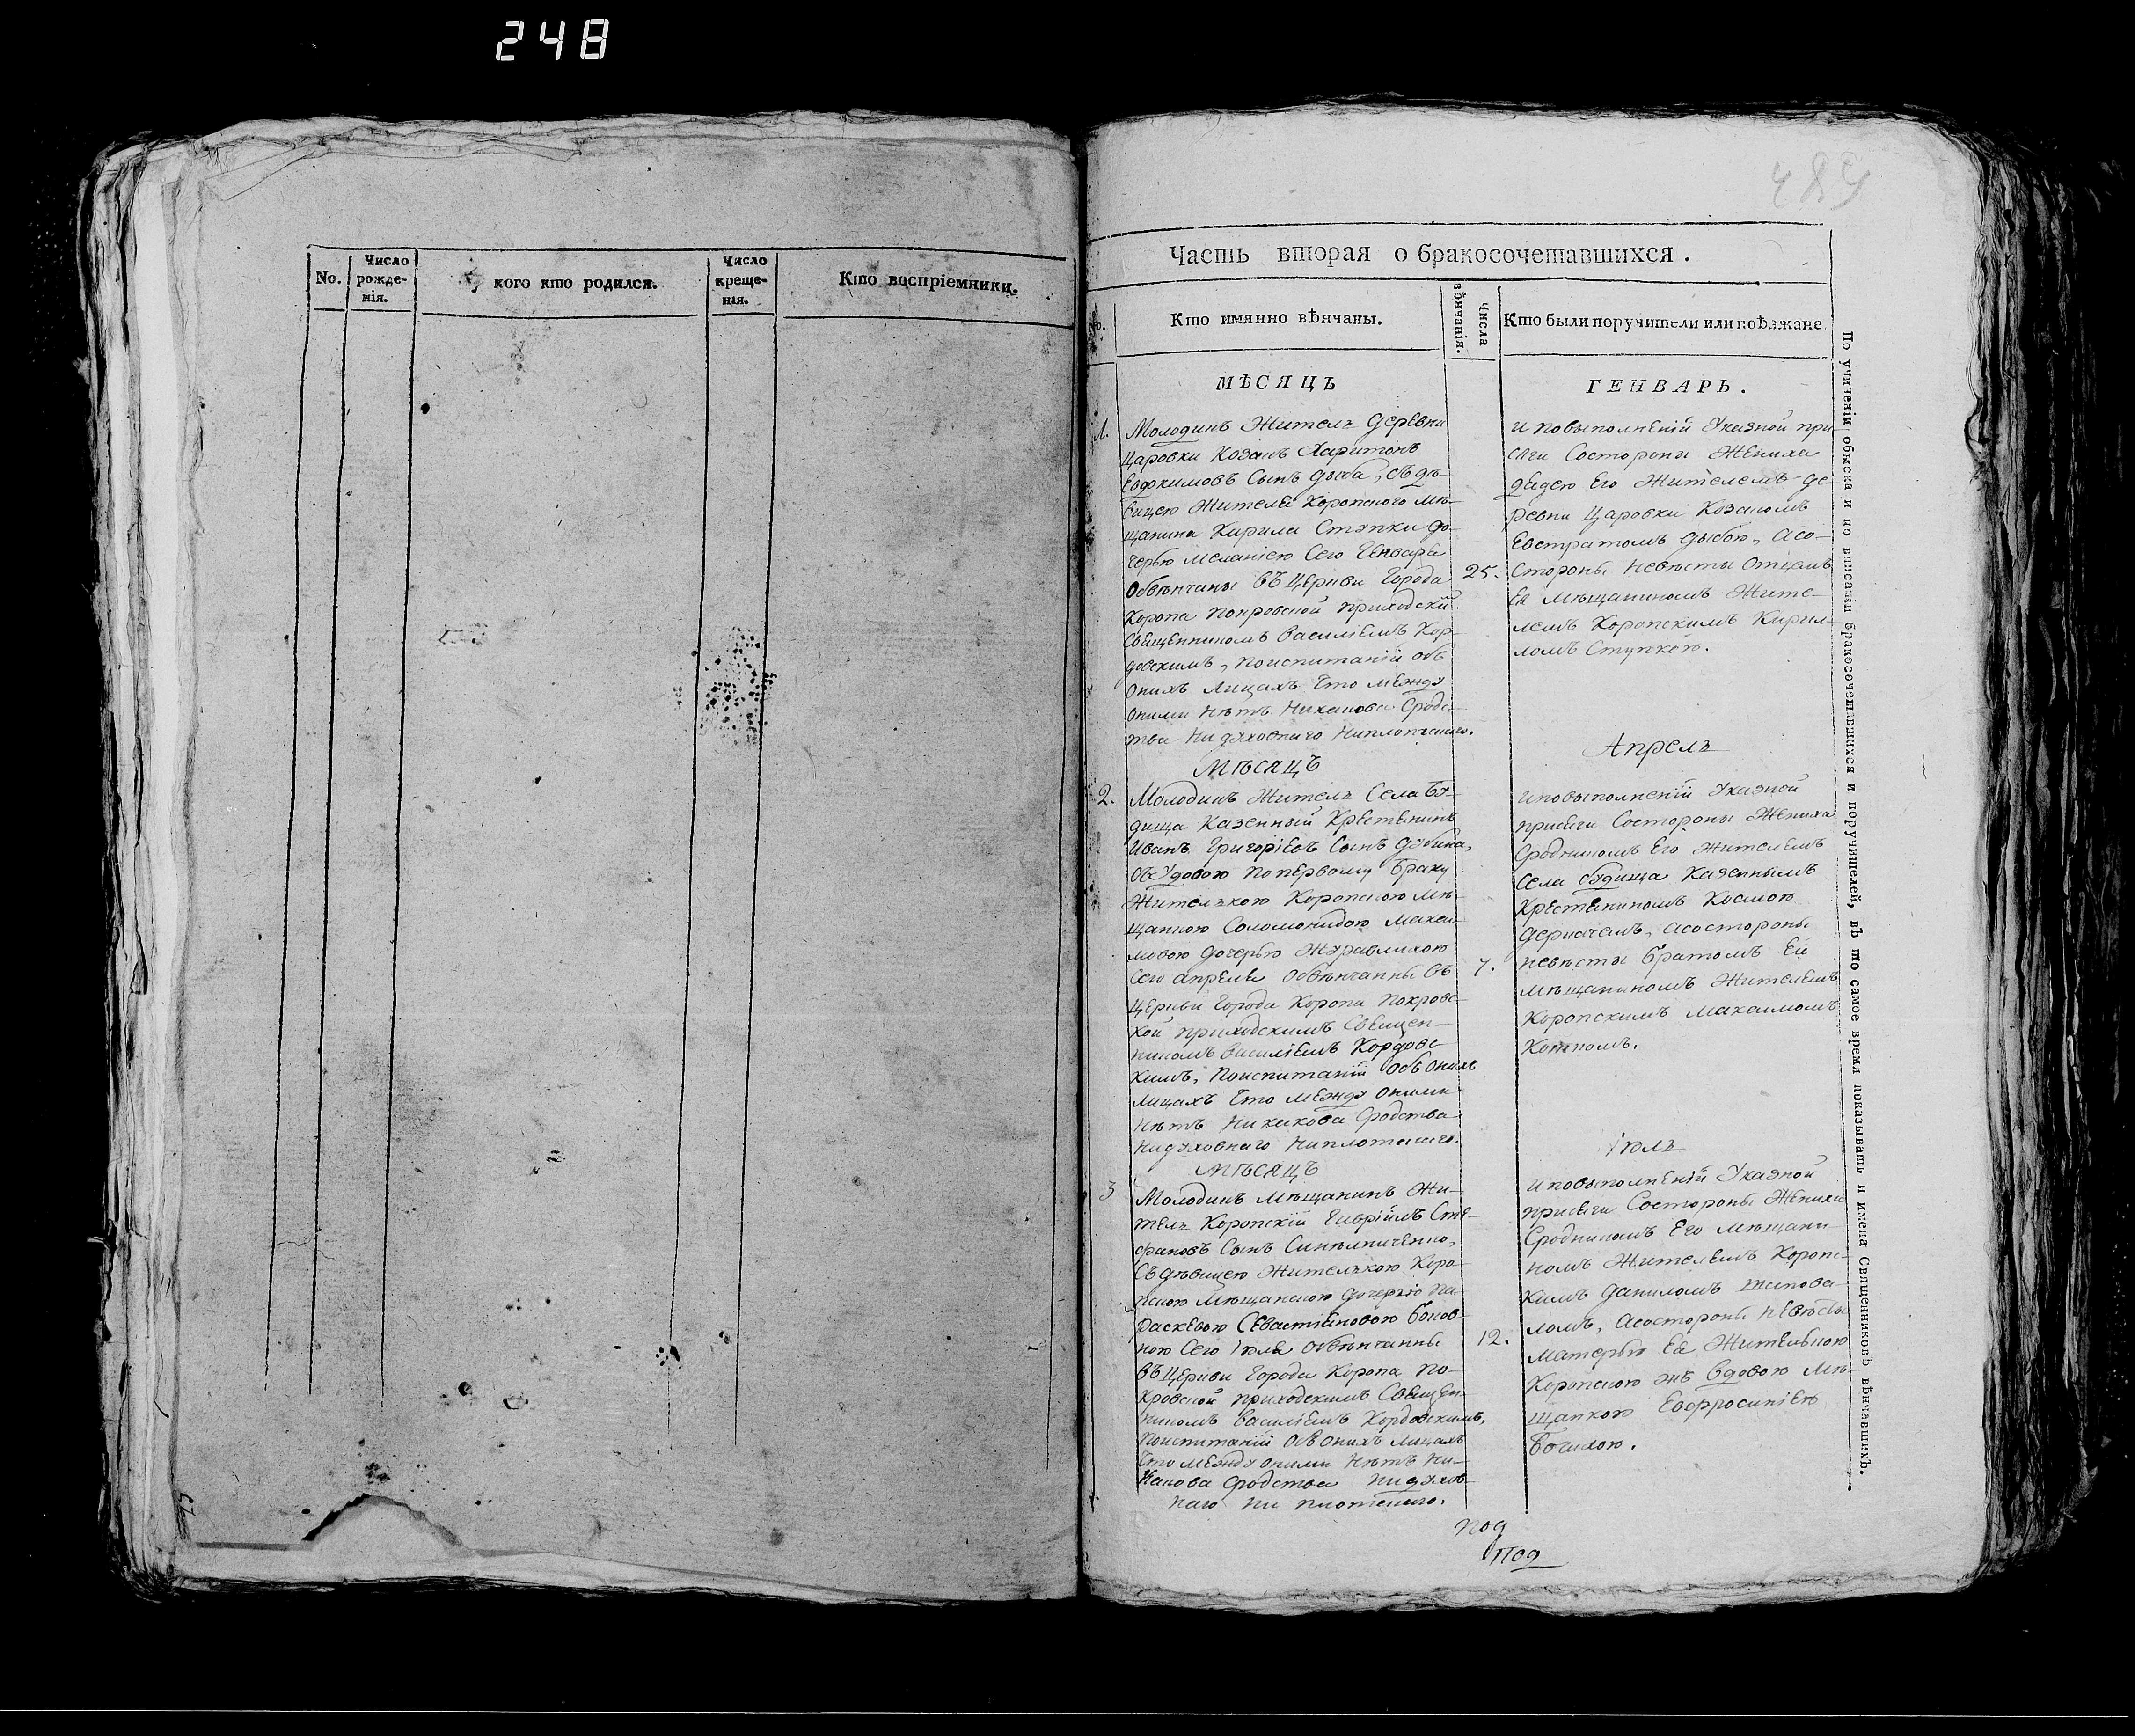 248
No.
Число рожде-нія.
кого кто родился.
Число креще-нія.
Кто воспріемники.
485
Часть вторая о бракосочетавшихся.
No.
Кто имянно вѣнчаны.
Числа вѣнчанія.
Кто были поручители или поѣзжане.
МѢСЯЦЪ
ГЕНВАРЬ.
1.
Молодикъ Житель Деревни
Царовки Козакъ Харитонъ
Евфкимовъ Сынъ Дыба, Съ дѣ-
вицею Жителя Коропского мѣ-
щанина Кирила Ступки до-
черью меланіею Сего Генваря
Обвѣнчаны въ Церкви Города
Коропа Покровской приходскій
Священникомъ Василіемъ Кор-
довскимъ, поиспитаніи объ
онихъ Лицахъ что между
оними нѣтъ Никакова Сродс-
тва ни духовнаго Ниплотскаго.
25.
и повыполненій Указной при-
сяги Состороны Жениха
дядею Его Жителемъ де-
ревни Царовки Козакомъ
Евстратомъ Дыбою, асо-
стороны невѣсты Отцемъ
Ея мѣщаниномъ Жите-
лемъ Коропскимъ Кирил-
ломъ Ступкою.
Мѣсяцъ
Апрель
2.
Молодикъ Житель Села Бу-
дища Казенный Крестянинъ
Иванъ Григоріевъ Сынъ Дубина,
съ Удовою поПервому Браку
Жителькою Коропскою мѣ-
щанкою Соломонидою макси-
мовою дочерью Журавлихою
Сего апреля Обвѣнчанны въ
Церкви Города Коропа Покровс-
кой приходскимъ Священ-
никомъ Василіемъ Кордовс
кимъ, Поиспитаніи объ онихъ
лицахъ что между оними
нѣтъ никакова Сродства
нидуховнаго ниплотскаго.
7.
иповыполненій Указной
присяги Состороны Жениха
Сродникомъ Его Жителемъ
Села будища Казеннымъ
Крестяниномъ Космою
Деркачемъ, асостороны
невѣсты братомъ Ей
мѣщаниномъ Жителемъ
Коропскимъ Максимомъ
Мѣсяцъ
Іюль
3
Молодикъ Мѣщанинъ Жи-
тель Коропскій Гавріилъ Сте-
фановъ Сынъ
Съ дѣвицею Жителькою Коро-
пскою мѣщанскою дочерью Па-
раскевою Севастіяновою
Сего Іюля Обвѣнчанны
въ Церкви Города Коропа По-
кровской приходскимъ Священ-
никомъ Василіемъ Кордовскимъ,
Поиспитаніи объ онихъ лицахъ
что между оними нѣтъ ни-
какова Сродства нидухов-
наго ни плотскаго.
12.
и повыполненій Указной
присяги Состороны Жениха
Сродникомъ Его Мѣщани-
номъ Жителемъ Коропс-
кимъ Даниломъ Шапова-
ломъ, асостороны невѣсты
матерью Ея Жителькою
Коропскою жъ вдовою Мѣ-
щанкою Евфросиніею
Под
Под
По учиненіи обыска и по вписаніи бракосочетавшихся и поручителей, въ то самое время показывать и имена Священниковъ вѣнчавшихъ.